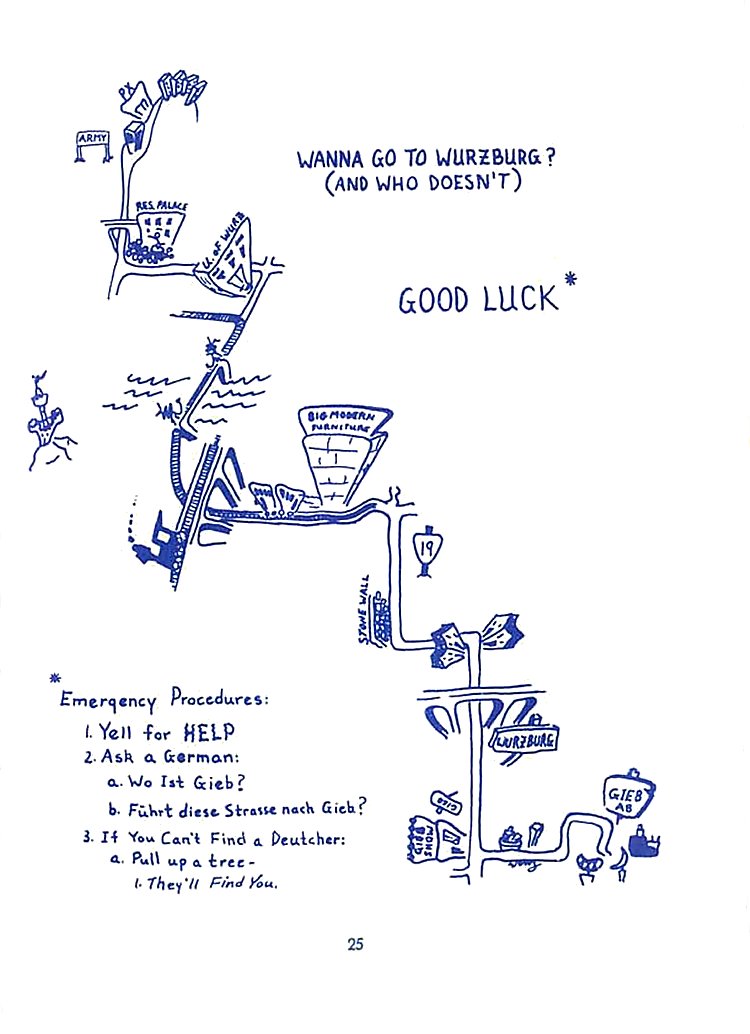 PX
ARMY
WANNA GO TO WURZBURG?
(AND WHO DOESN'T)
RES. PALACE
U. OF WURZ
GOOD LUCK*
BIG MODERN
FURNITURE
19
STONE WALL
*
Emergency Procedures:
1. Yell for HELP
2. Ask a German:
a. Wo Ist Gieb?
b. Führt diese Strasse nach Gieb?
3. If You Can't Find a Deutcher:
a. Pull up a tree-
1. They'll Find You.
WURZBURG
GIEB
AB
GIEB
SHOW
25